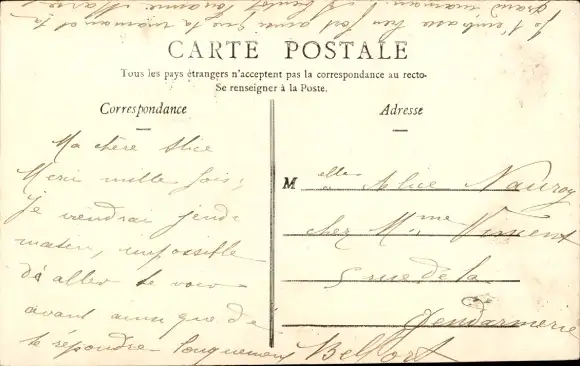 CARTE POSTALE
Tous les pays étrangers n'acceptent pas la correspondance au recto.
Se renseigner à la Poste.
Correspondance
Ma chère Alice
Merci mille fois;
je viendrai jeudi
matin, impossible
d'aller te voir
avant ainsi que de
te répondre longuement
Je t'embrasse bien fort ainsi que ta maman et ta
grand maman.
Adresse
Melle Alice Nauroy
chez Mme Vincent
5 rue de la
Gendarmerie
Belfort